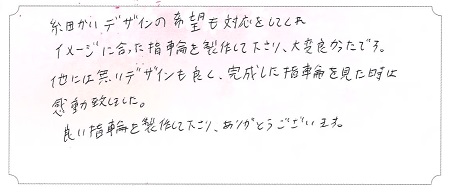 細かいデザインの希望も対応をしてくれ
イメージに合った指輪を製作して下さり、大変良かったです。
他には無いデザインも良く、完成した指輪を見た時は
感動致しました。
良い指輪を製作して下さり、ありがとうございます。